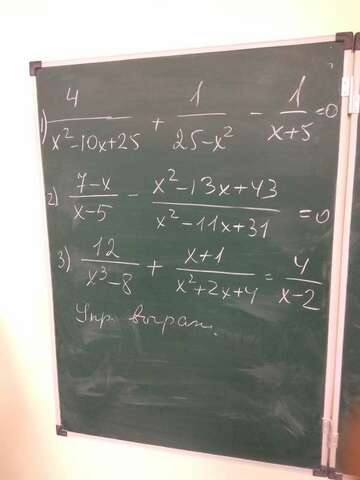 1) 4/(x²-10x+25) + 1/(25-x²) - 1/(x+5) =0
2) (7-x)/(x-5) - (x²-13x+43)/(x²-11x+31) =0
3) 12/(x³-8) + (x+1)/(x²+2x+4) = 4/(x-2)
Упр. выраж.